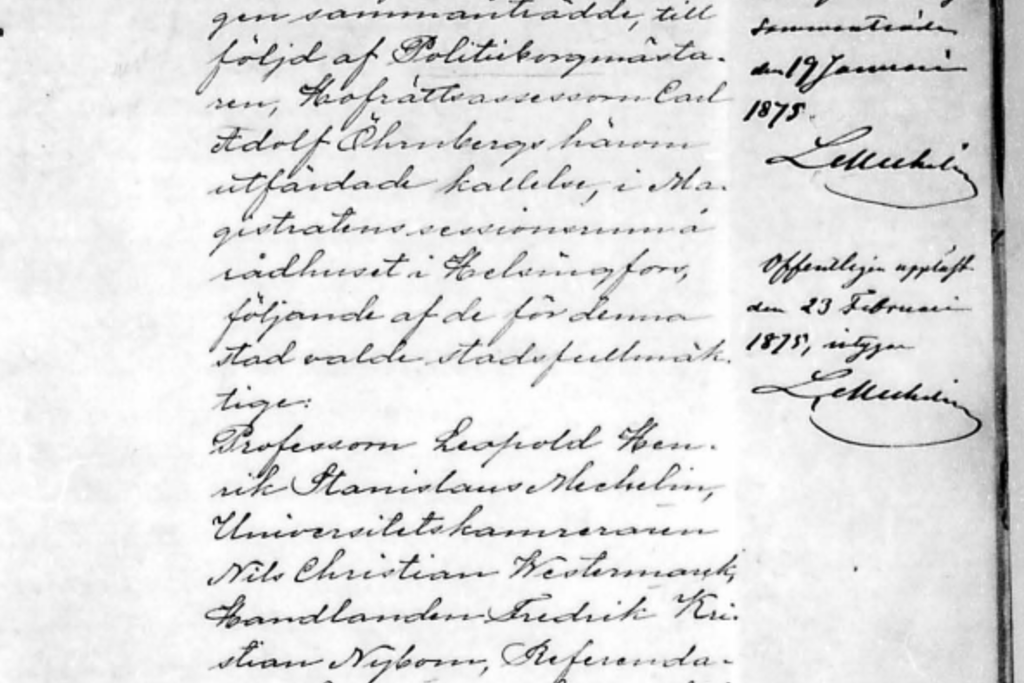 gen sammanträdde, till
följd af Politieborgmästa-
ren, Hofrättsassessorn Carl
Adolf Öhrnbergs härom
utfärdade kallelse, i Ma-
gistratens sessionsrum å
rådhuset i Helsingfors,
följande af de för denna
stad valde stadsfullmäk-
tige:
Professorn Leopold Hen-
rik Stanislaus Mechelin,
Universitetskamreraren
Nils Christian Westermarck,
Handlanden Fredrik Kri-
stian Nybom, Referenda-
sammanträde
den 19 Januari
1875.
LMechelin
Offentligen uppläst
den 23 Februari
1875, intygar
LMechelin